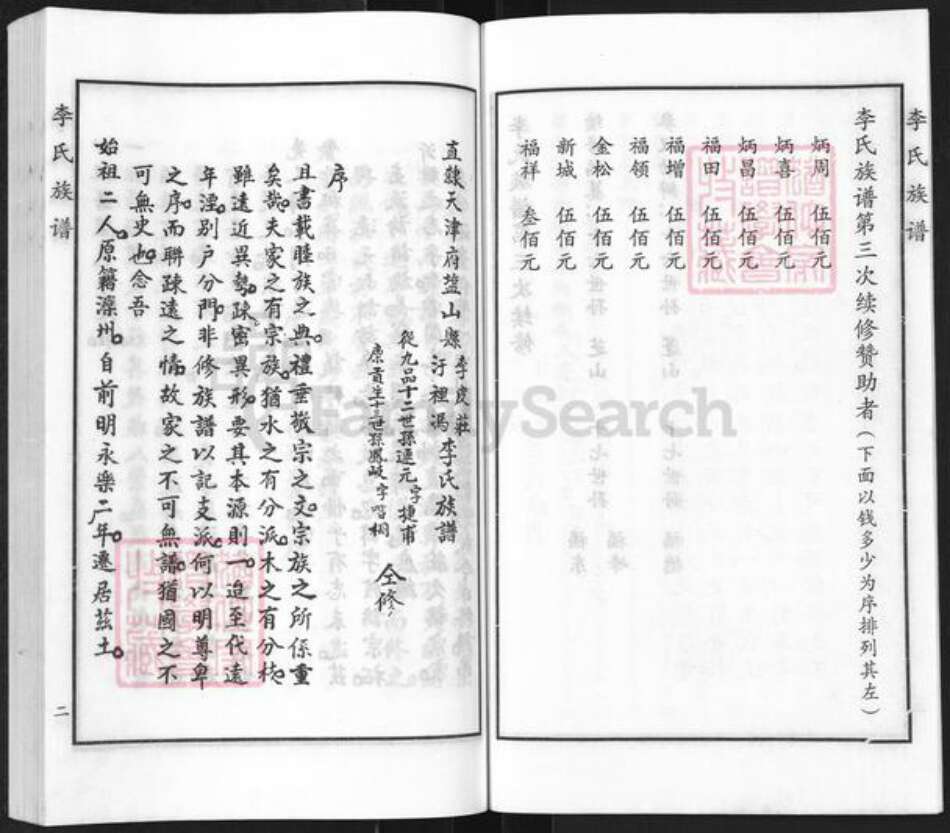 李氏族谱
李氏族谱第三次续修赞助者（下面以钱多少为序排列其左）
炳周 伍佰元
炳喜 伍佰元
炳昌 伍佰元
福田 伍佰元
福增 伍佰元
福领 伍佰元
金松 伍佰元
新城 伍佰元
福祥 叁佰元
FamilySearch
直隸天津府塩山縣李皮莊汙裡馮李氏族譜
從九品十二世孫連元字捷甫
康貢生十三世孫鳳岐字喈桐
仝修
序
且書載睦族之典禮垂敬宗之文宗族之所係重
矣哉夫家之有宗族猶水之有分派木之有分枝
雖遠近異勢疎密異形要其本源則一迨至代遠
年湮别户分門非修族譜以記支派何以明尊卑
之序而聯疎遠之情故家之不可無譜猶國之不
可無史也念吾
始祖二人原籍灤州自前明永樂二年遷居茲土
李氏族谱
二